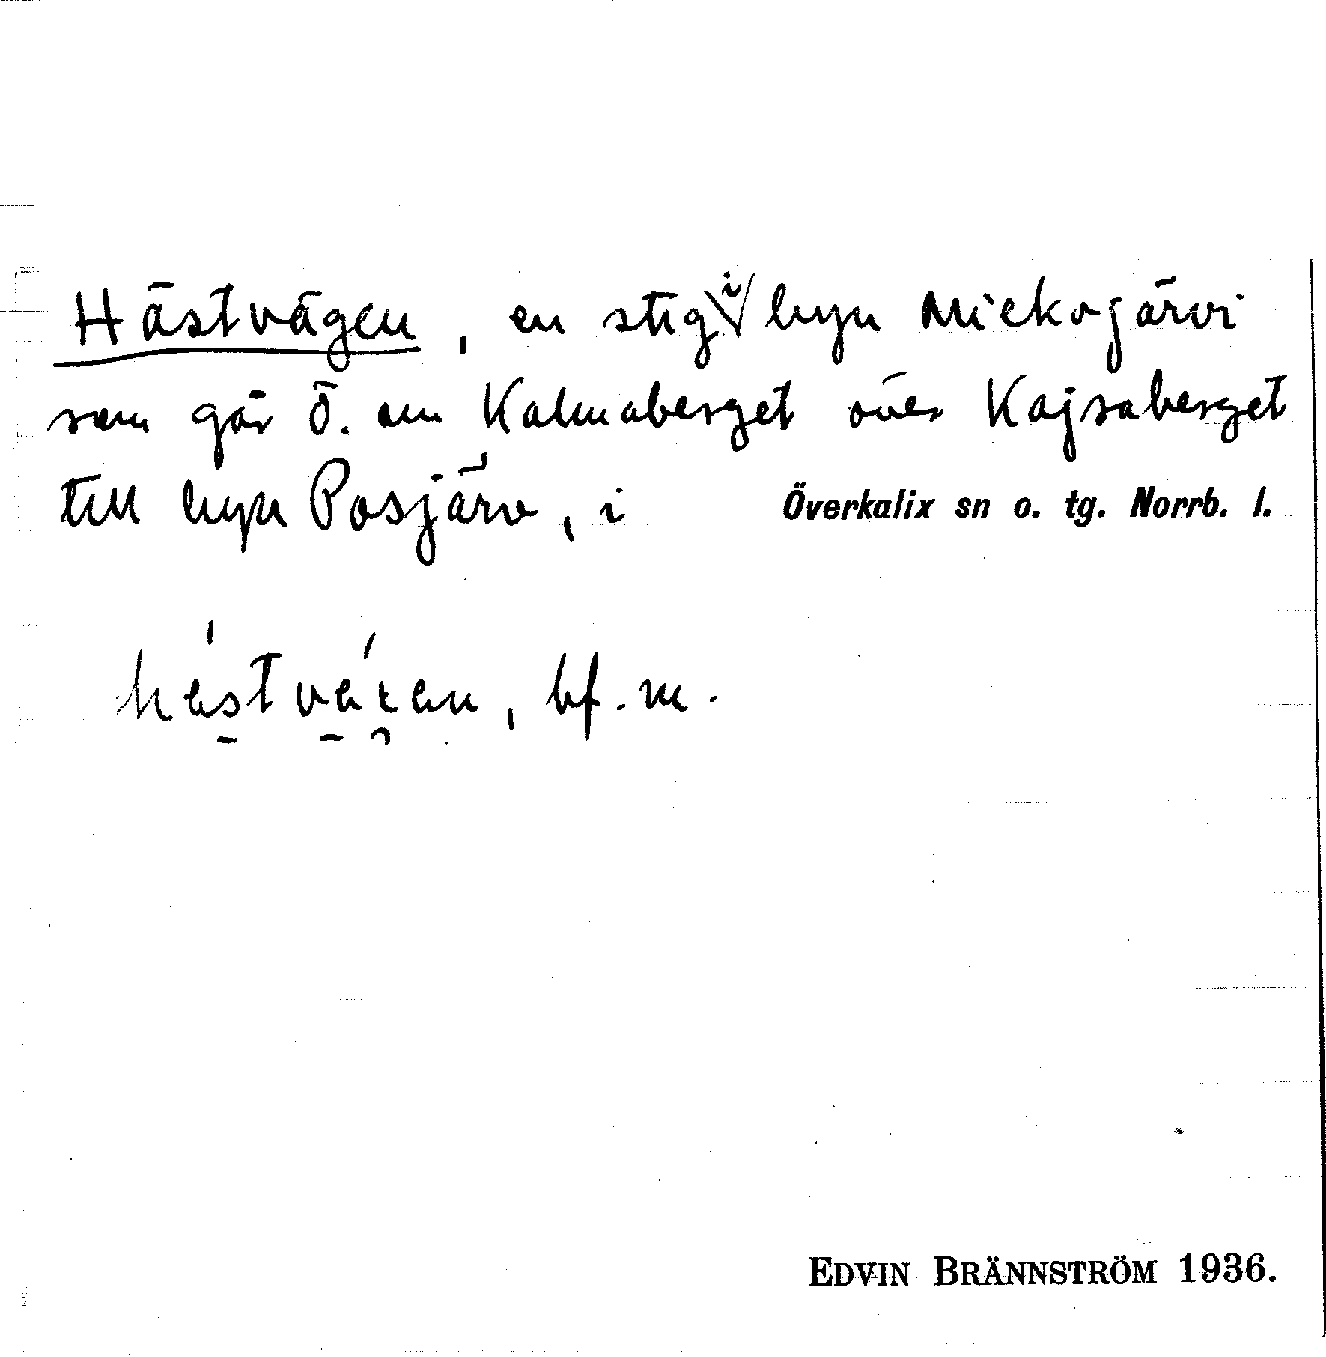 Hästvägen, en stig i byn Miekojärvi
som går Ö. om Kalmaberget över Kajsaberget
till byn Posjärv, i Överkalix sn o. tg. Norrb. l.
hestveɛen, bf. m.
EDVIN BRÄNNSTRÖM 1936.